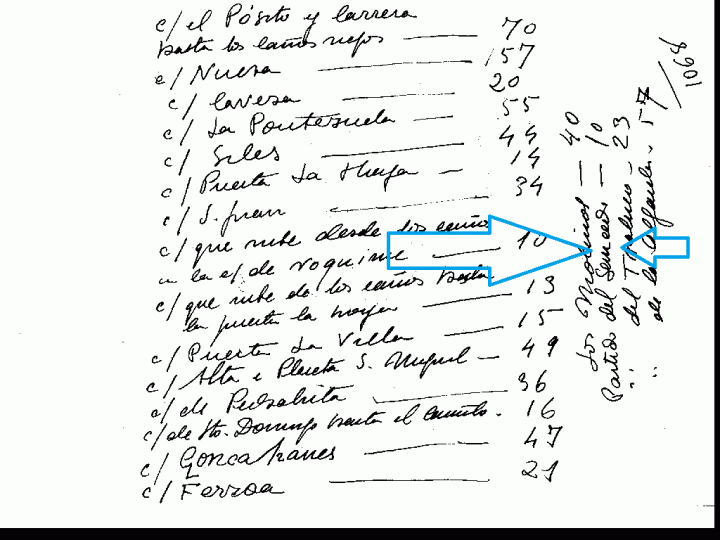 c/ el Pósito y Carrera
hasta los caños viejos — 70
c/ Nueva — 157
c/ Cavera — 20
c/ La Pontezuela — 55
c/ Siles — 44
c/ Puerta La — 14
c/ S. Juan — 34
c/ que sube desde los caños
en la c/ de Roquime — 10
c/ que sube de los caños hasta
la puerta la — 13
c/ Puerta La Villa — 15
c/ Alta e Placeta S. Miguel — 49
c/ de Pedrahita — 36
c/ de Sto. Domingo hasta el — 16
c/ — 47
c/ Ferroa — 21
Los Molinos — 40
Partido del — 10
" del — 23
" de la — 57
1068